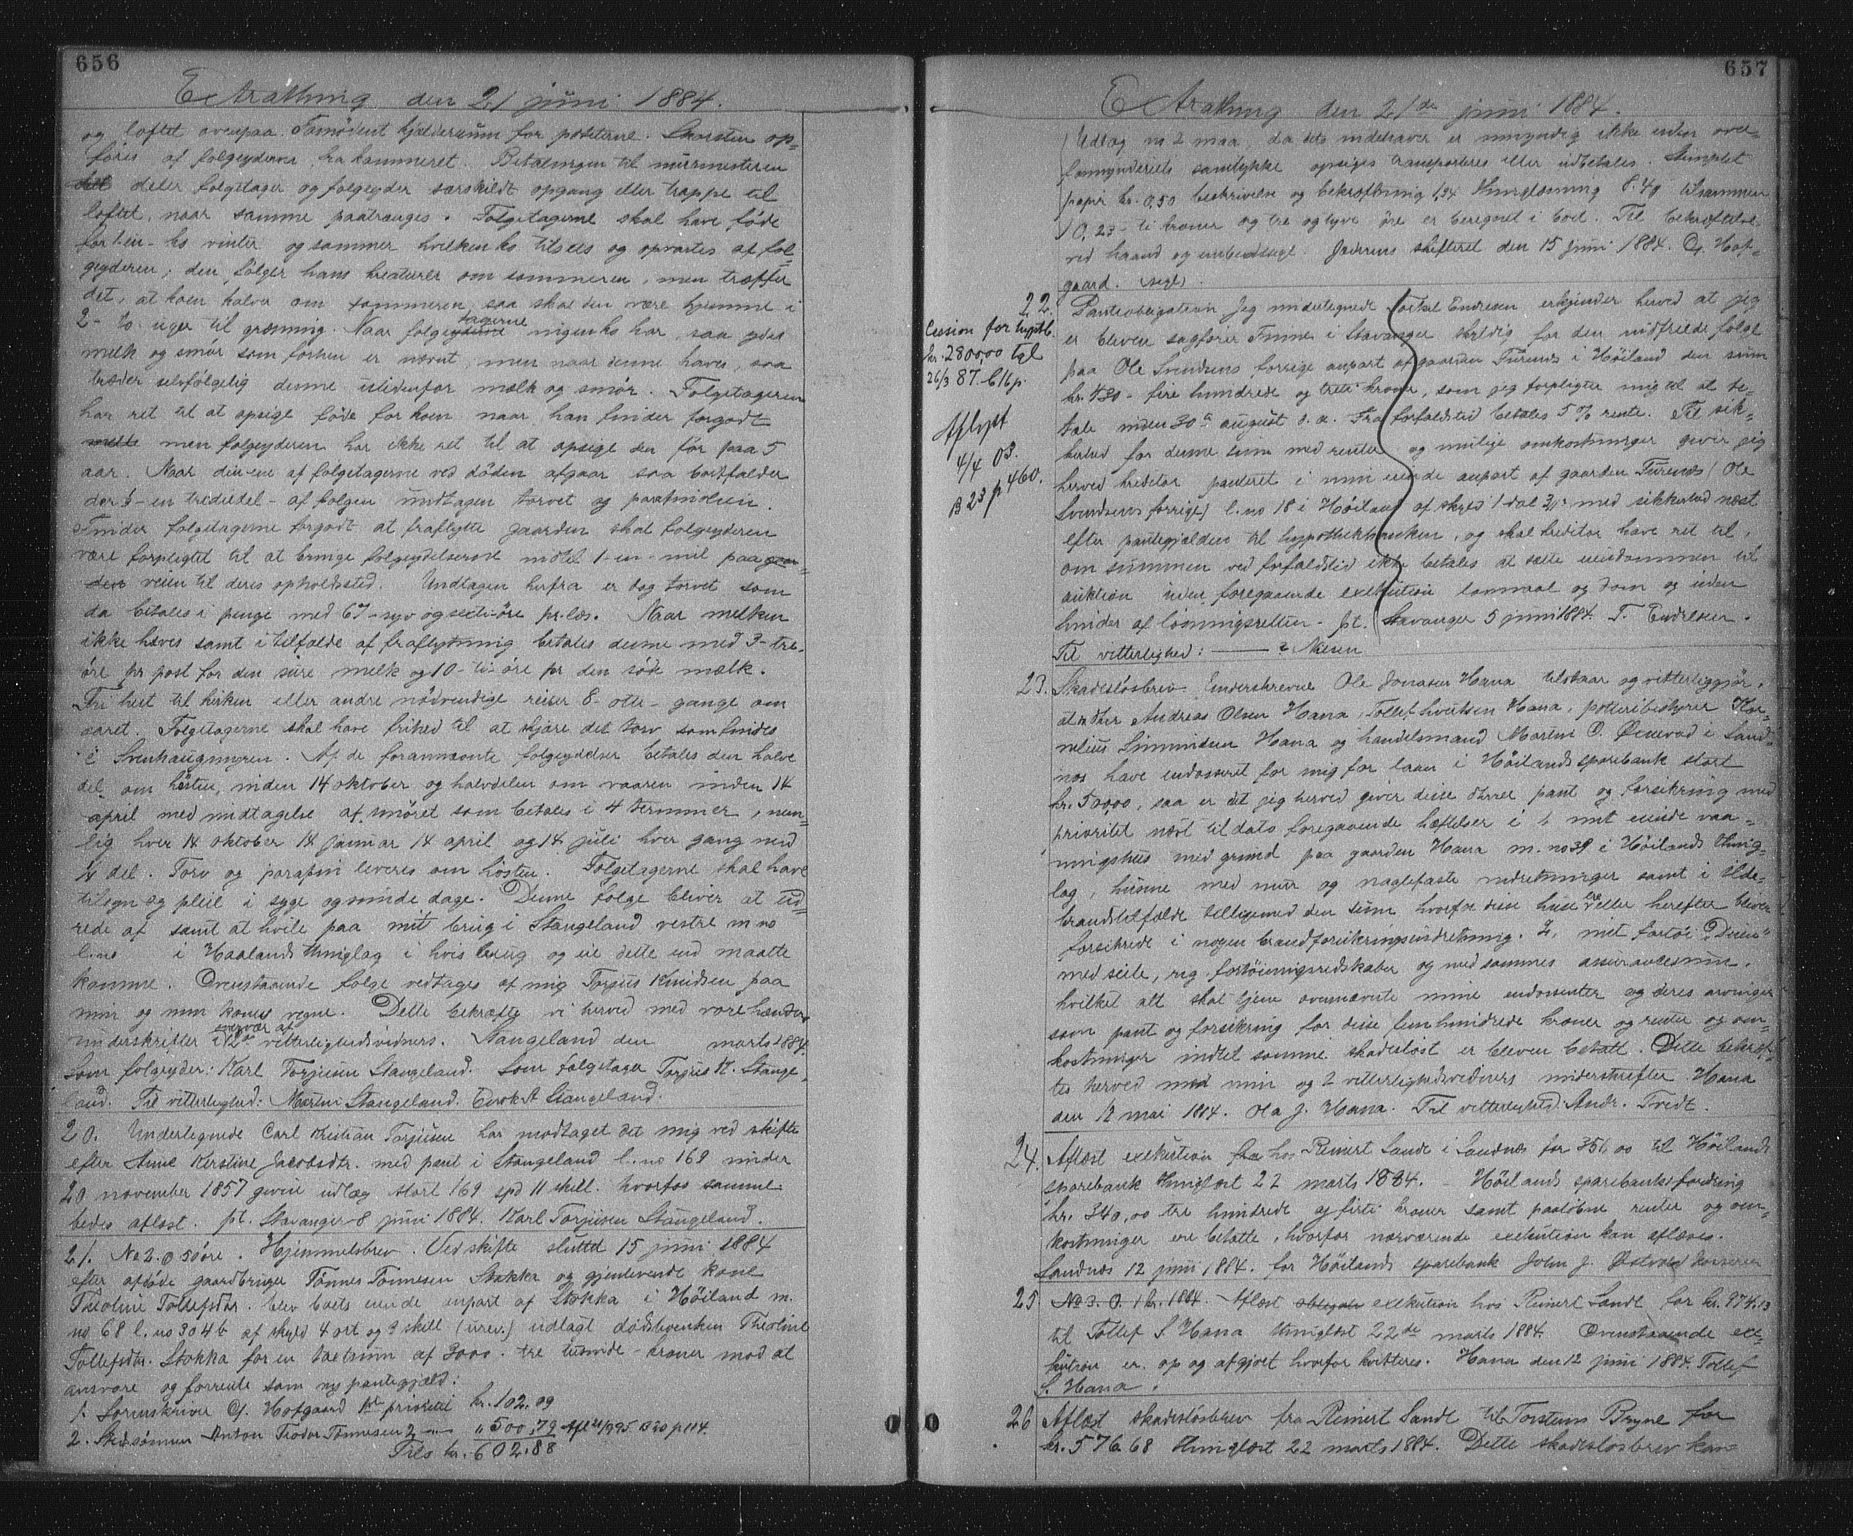 656
Extrathing den 21 juni 1884.
og loftet ovenpaa. Tomødent kjælderrum for poteterne. Skorsten op-
føres af folgeyderne fra kammeret. Betalingen til murmesteren
deler folgetager og folgeyder særskildt opgang eller trappe til
loftet, naar samme paatrænges. Folgetagerne skal have føde
for 1-en-ko vinter og sommer hvilken ko tilsees og opvartes af fol-
geyderen; den følger hans kreaturer om sommeren, men træffer
det, at koen kalver om sommeren, saa skal den være hjemme i
2-to uger til græsning. Naar folgetagerne ingen ko har, saa ydes
melk og smør som forhen er nævnt, men naar denne haves, saa
træder selvfølgelig denne istedenfor mælk og smør. Folgetageren
har ret til at opsige føde for koen naar han finder forgodt
men folgeyderen har ikke ret til at opsige den før paa 5
aar. Naar den ene af folgetagerne ved døden afgaar saa bortfalder
der ⅓-en trediedel-af folgen undtagen torvet og parafinolien.
Finder folgetagerne forgodt at fraflytte gaarden skal folgeyderen
være forpligtet til at bringe folgeydelserne indtil 1-en-mil paa gaar-
dens veien til deres opholdssted. Undtagen herfra er dog torvet som
da betales i penge med 67-syv og seksti-øre pr. læs. Naar melken
ikke hæves samt i tilfælde af fraflytning betales denne med 3-tre-
øre pr post for den sure melk og 10-ti-øre pr den søde mælk.
Fri hest til kirken eller andre nødvendige reiser 8-otte-gange om
aaret. Folgetagerne skal have frihed til at skjære det torv som findes
i Svenhaugmyren. Af de forannævnte folgeydelser betales den halve
del om høsten, inden 14 oktober og halvdelen om vaaren inden 14
april med undtagelse af smøret som betales i 4 terminer, nem-
lig hver 14 oktober 14 januar 14 april og 14 juli hver gang med
¼ del. Torv og parafin leveres om høsten. Folgetagerne skal have
tilsyn og pleie i syge og sunde dage. Denne folge bliver at ud-
rede af samt at hvile paa mit brug i Stangeland vestre m no
l. no i Haalands thinglag i hvis brug og eie dette end maatte
komme. Ovenstaaende folge vedtages af mig Torjus Knudsen paa
min og min kones vegne. Dette bekræfte vi herved med vore hænders
underskrifter i overvær af vitterlighedsvidners. Stangeland den marts 1884.
Som folgeyder: Karl Torjusen Stangeland. Som folgetager Torjus K. Stange-
land. Til vitterlighed: Martin Stangeland. Enok A Stangeland.
20. Undertegnede Carl Kristian Torjusen har modtaget det mig ved skifte
efter Anne Kerstine Jacobsdtr. med pant i Stangeland l. no 169 under
20 november 1857 givne udlæg stort 169 spd 11 skill. hvorfor samme
bedes aflæst. pt. Stavanger 8 juni 1884. Karl Torjusen Stangeland.
21. No 2. 0 50 øre. Hjemmelsbrev. Ved skifte sluttet 15 juni 1884
efter afdøde gaardbruger Tønnes Tønnesen Stokka og gjenlevende kone
Theoline Tollefsdtr. blev boets eiende anpart af Stokka i Høiland m.
no 68 l. no 304 b af skyld 4 ort og 9 skill (urev.) udlagt dødsboenken Theoline
Tollefsdtr. Stokka for en taxtsum af 3000- tre tusinde -kroner mod at
ansvare og forrente som ny pantegjæld:
1. Sorenskriver Cj. Hofgaard 1ste prioritet kr. 102.09
2. Stedsønnen Anton Teodor Tønnesen 2 — " 500,79 Afl 21/9 95 B 20 p 114.
Tils kr. 602.88
657
Extrathing den 21de juni 1884.
Udlæg no 2 maa, da dets indehaver er umyndig ikke uden over-
formynderiets samtykke opsiges transporteres eller udbetales. Stemplet
papir kr. 0,50 beskrivelse og bekræftning 1,34 Thinglæsning 8.40 tilsammen
10,23- ti kroner og tre og tyve øre er beregnet i boet. Til bekræftelse
ved haand og embedssegl. Jæderens skifteret den 15 juni 1884. Cj. Hof-
gaard. (segl).
22.
Cession for hyptb.
kr. 2800,00 tgl
26/3 87. b 16 p.
Aflyst
4/4 03.
B 23 p 460.
Panteobligation Jeg undertegnede Torkel Endresen erkjender herved at jeg
er bleven sagfører Timme i Stavanger skyldig for den indfriede folge
paa Ole Svendsens forrige anpart af gaarden Turenes i Høiland den sum
kr. 430- fire hundrede og treti kroner, som jeg forpligter mig til at be-
tale inden 30te august d. a. Fra forfaldstid betales 5 % rente. Til sik-
kerhed for denne sum med renter og mulige omkostninger giver jeg
herved kreditor panteret i min eiende anpart af gaarden Turenes (Ole
Svendsens forrige) l. no 18 i Høiland af skyld 1 dal 3 11 med sikkerhed næst
efter pantegjælden til hypothekbanken, og skal kreditor have ret til,
om summen ved forfaldstid ikke betales at sætte eiendommen til
auktion uden foregaaende exekution lovmaal og dom og uden
hinder af løsningsretten- pt. Stavanger 5 juni 1884. T. Endresen.
Til vitterlighed: —— ? Nielsen
23. Skadesløsbrev. Underskrevne Ole Jonasen Hana tilstaar og vitterliggjør,
at efter Andreas Olsen Hana, Tollef Sivertsen Hana, potteribestyrer Kor-
nelius Simundsen Hana og handelsmand Martin O. Ørnevad i Sand-
nes have endosseret for mig for laan i Høilands sparebank stort
kr. 500,00, saa er det jeg herved giver disse første pant og forsikring med
prioritet næst til dato foregaaende hæftelser i 1, mit eiende vaa-
ningshus med grund paa gaarden Hana m. no 39 i Høilands thing-
lag, husene med mur og naglefaste indretninger samt i ilde-
brandstilfælde tilligemed den sum hvorfor disse huse er eller herefter bliver
forsikrede i nogen brandforsikringsindretning. 2, mit fartøi "Duen"
med seile, rig, fortøiningsredskaber og med sammes assurancesum.
hvilket alt skal tjene ovennævnte mine endossenter og deres arvinger
som pant og forsikring for disse femhundrede kroner og renter og om-
kostninger indtil somme skadesløst er bleven betalt. Dette bekræf-
tes herved med min og 2 vitterlighedsvidners underskrifter Hana
den 17 mai 1884. Ola J. Hana. Til vitterlighed: Andr. Tvedt.
24. Aflæst exekution fra hos Reinert Sande i Sandnes for 351,00 til Høilands
sparebank thinglæst 22 marts 1884. - Høilands sparebanks fordring
kr. 340,00 tre hundrede og firti kroner samt paaløbne renter og om-
kostninger ere betalte, hvorfor nærværende exekution kan aflæses.
Sandnæs 12 juni 1884. for Høilands sparebank John J. Østvold kasserer
25. No 3. 0. 1 kr. 1884. Aflæst exekution hos Reinert Sandt for kr. 954.13
til Tollef S Hana thinglæst 22de marts 1884. Ovenstaaende exe-
kution er op og afgjort hvorfor kvitteres. Hana den 12 juni 1884. Tollef
S. Hana.
26 Aflæst skadesløsbrev fra Reinert Sandt til Torstens Bryne for
kr. 576.68 thinglæst 22 marts 1884. Dette skadesløsbrev kan